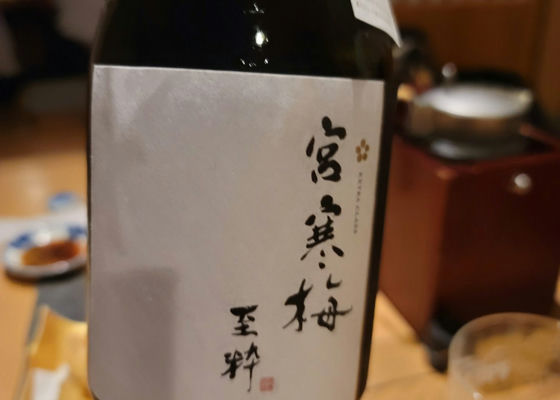 宮寒梅
至粋